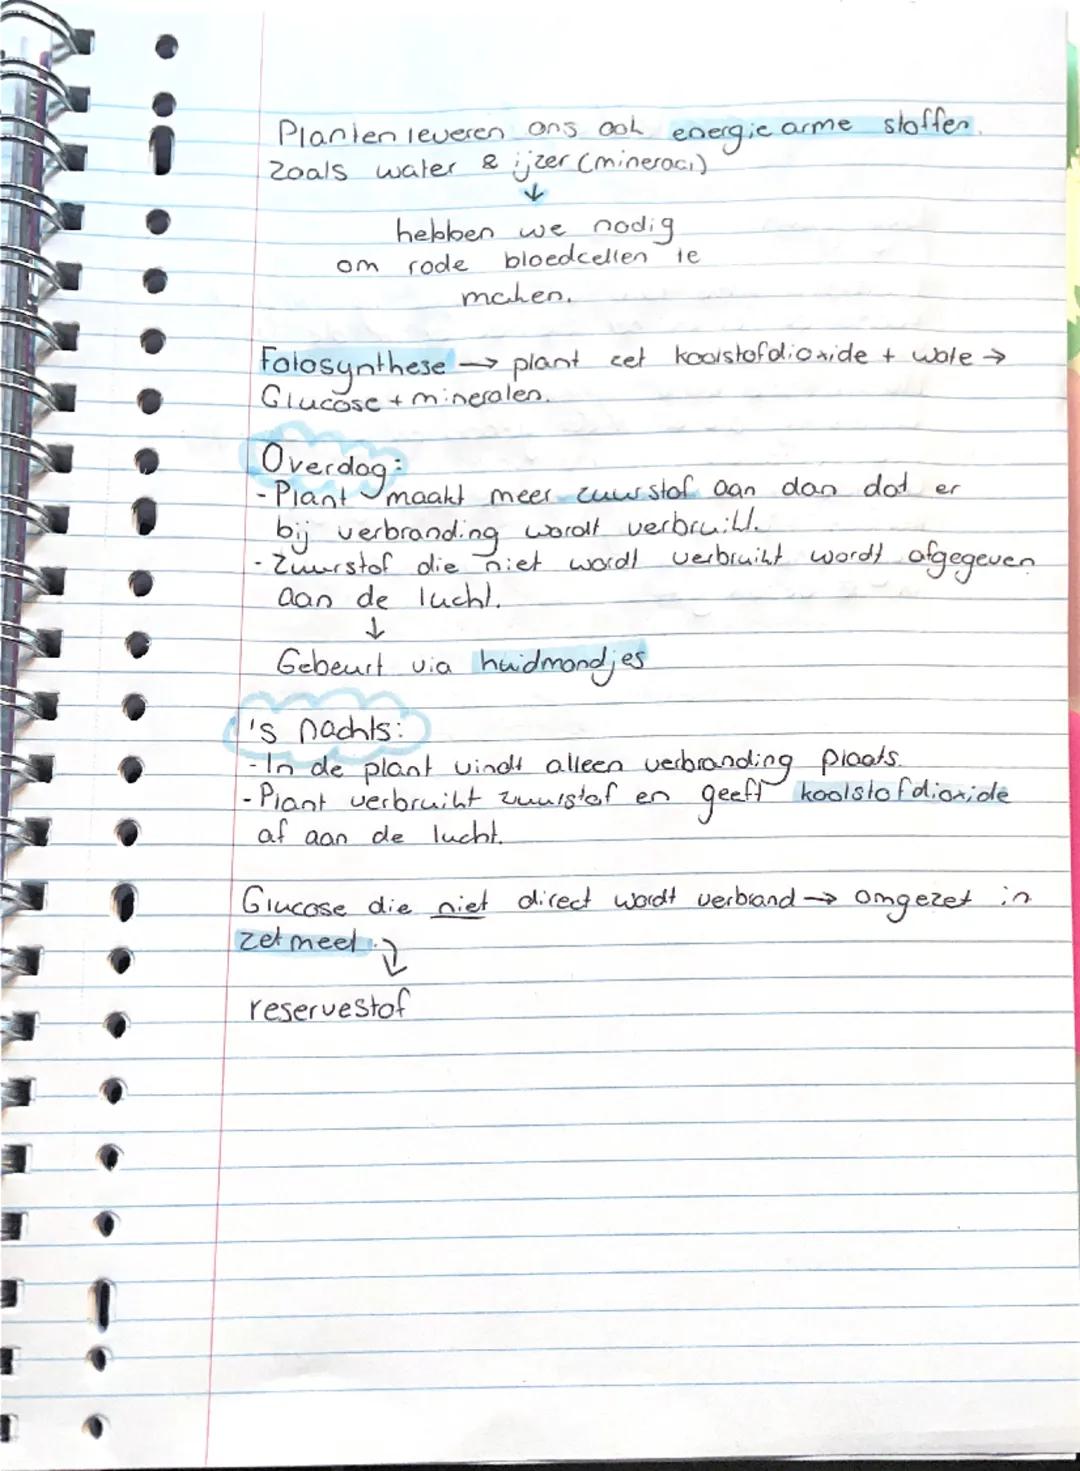 Planten leveren ons ook energie arme stoffen.
Zoals water & ijzer (mineraal)
↓
hebben we nodig
om rode bloedcellen te
maken.
Fotosynthese → plant zet koolstofdioxide + wate →
Glucose + mineralen.
Overdag:
- Plant maakt meer zuurstof aan dan dat er
bij verbranding wordt verbruikt.
- Zuurstof die niet wordt verbruikt wordt afgegeven
aan de lucht.
↓
Gebeurt via huidmondjes
's nachts:
- In de plant vindt alleen verbranding plaats.
- Plant verbruikt zuurstof en geeft koolstofdioxide
af aan de lucht.
Glucose die niet direct wordt verbrand → omgezet in
zetmeel.
↓
reservestof